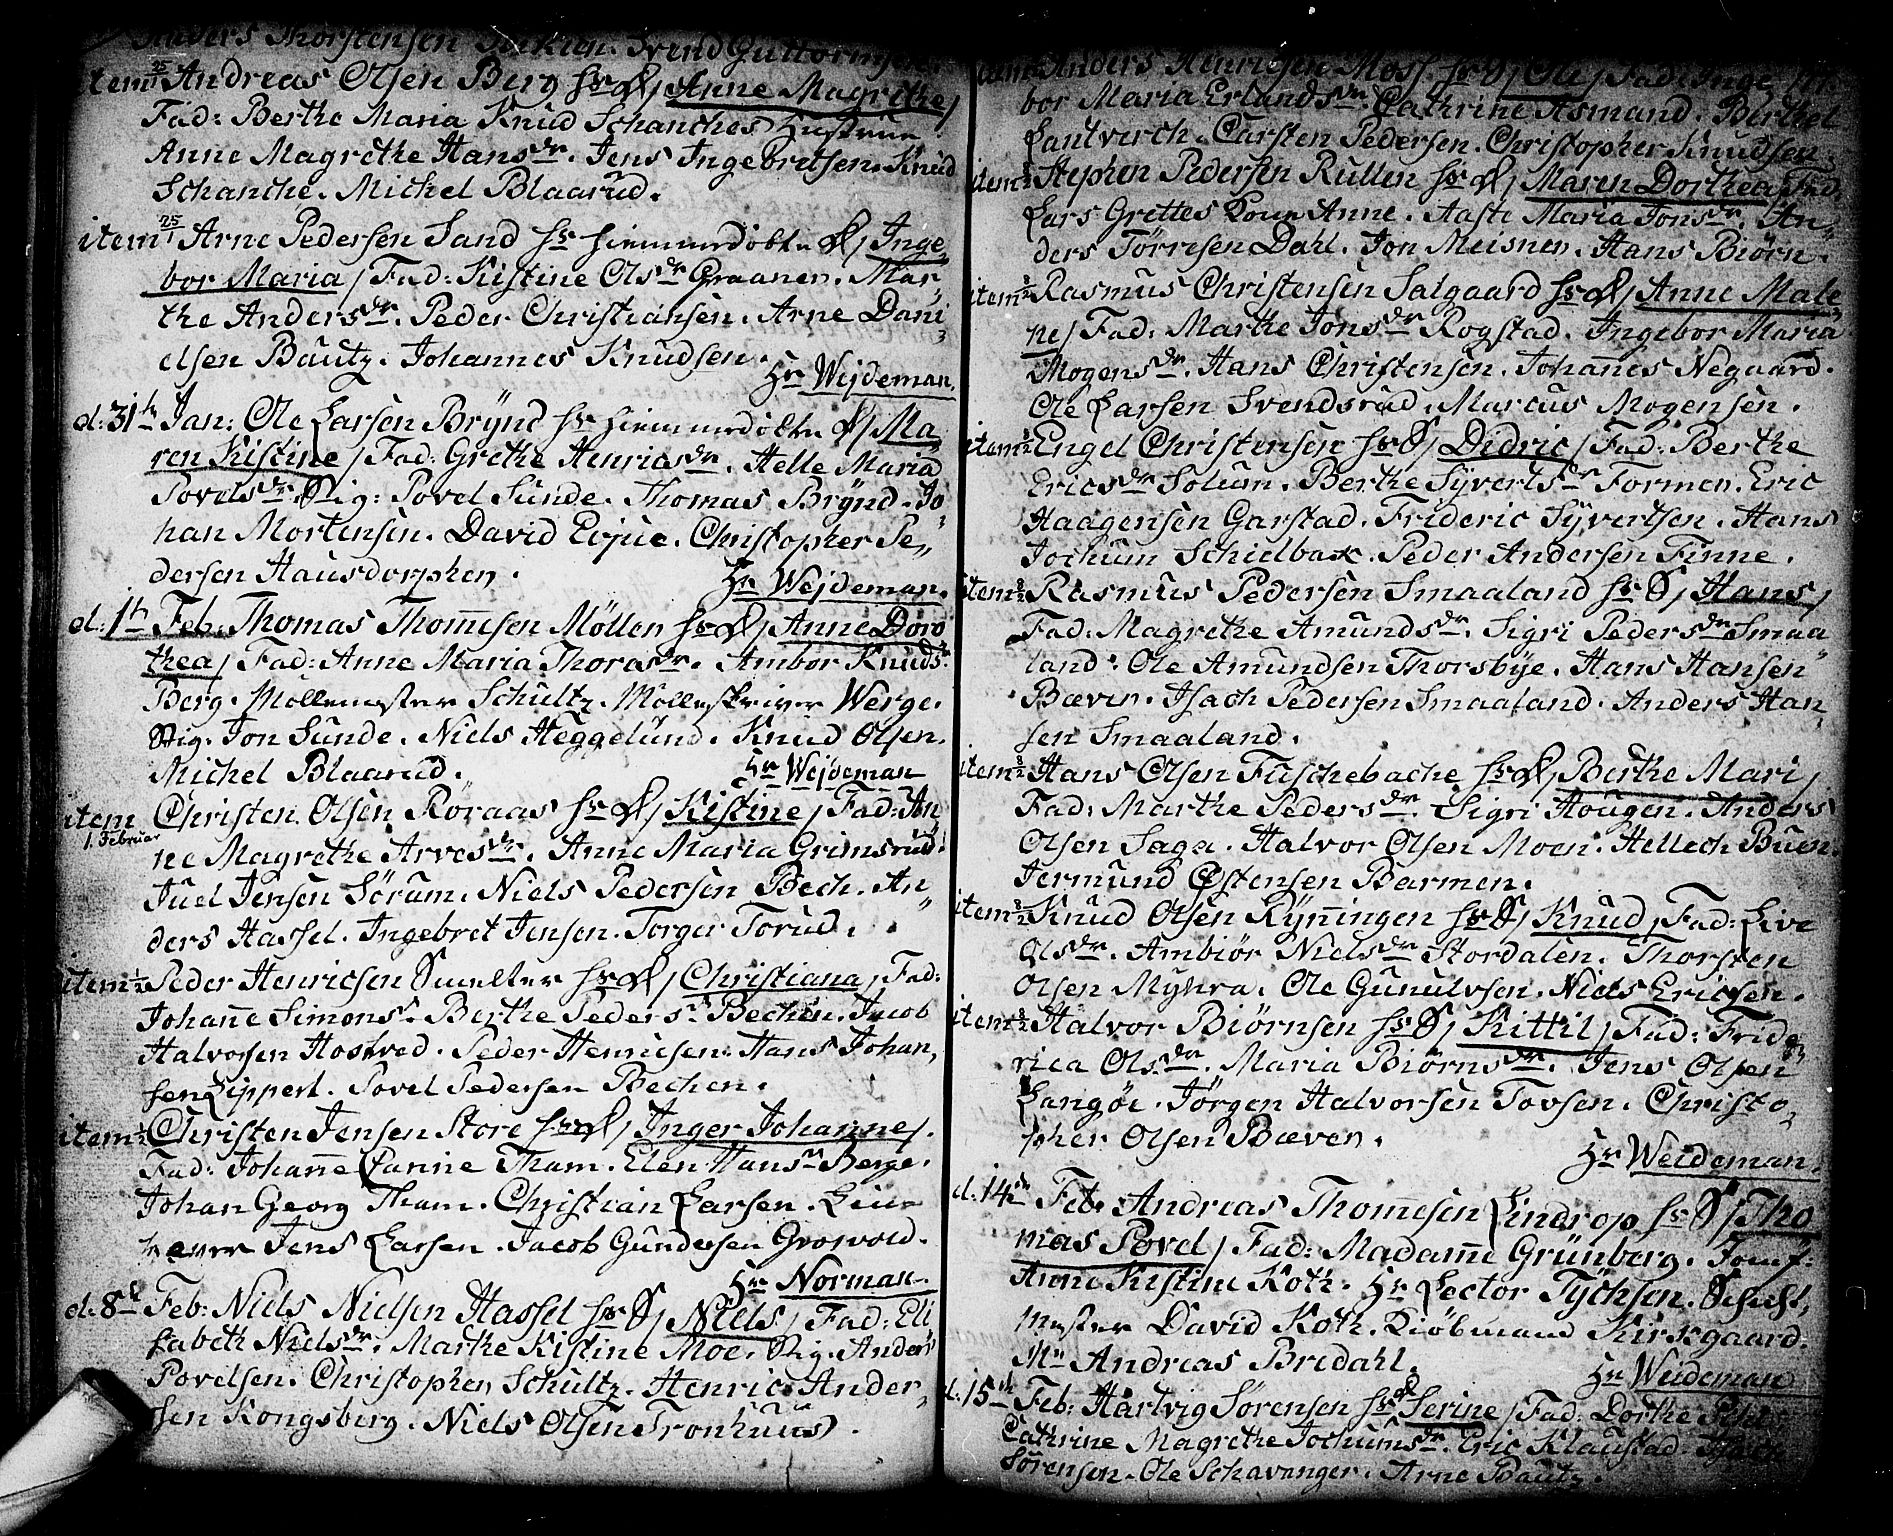 Anders Thorstensen Svend Guttormsen
item 25/1 Andreas Olsen Berg hr D/ Anne Magrethe/
Fad: Berthe Maria Knud Schanches Hustrue
Anne Magrethe Hansdr. Jens Ingebretsen. Knud
Schanche. Michel Blaarud.
item 25/1 Arne Pedersen Sand hr hiemmedøbte D/ Inge„
bor Maria/ Fad: Kistine Olsdr Graanen. Mar„
the Andersdr. Peder Christiansen. Arne Dani„
elsen Bautz. Johannes Knudsen.
Hr Wejdeman.
d: 31th Jan: Ole Larsen Brÿnd hr hiemmedøbte D/ Ma„
ren Kistine/ Fad: Grethe Henricsdr. Helle Maria
Povelsdr Stig: Povel Sunde. Thomas Brÿnd. Jo„
han Mortensen. David Evjue. Christopher Pe„
dersen Hausdorphen.
Hr Wejdeman.
d: 1th Feb: Thomas Thom̄esen Möllen hr D/ Anne Doro„
thea/ Fad: Anne Maria Thorasdr. Ambor Knuds.
Berg. Möllemester Schultz. Mölleskriver Werge.
Stig. Jon Sunde. Niels Heggelund. Knud Olsen.
Michel Blaarud.
Hr Wejdeman
item Christen Olsen Röraas hr D/ Kistine/ Fad: An„
1. Februar
ne Magrethe Arvesdr. Anne Maria Grimsrud.
Juel Jensen Sörum. Niels Pedersen Bech. An„
ders Hassel. Ingebret Jensen. Torger Torud.
item 1/2 Peder Henricsen Smelter hr D/ Christiana/ Fad:
Johan̄e Simons. Berthe Peders Bechen. Jacob
Halvorsen Hostved. Peder Henricsen. Hans Johan„
sen Lippert. Povel Pedersen Bechen.
item 1/2 Christen Jensen Store hr D/ Inger Johanne/.
Fad: Johan̄e Lanine Tham. Elen Hans Berge.
Johan Georg Tham. Christian Larsen.
Jens Larsen. Jacob Gundersen Grosvold.
Hr Norman
d: 8th Feb: Niels Nielsen Hassel hr S/ Niels/ Fad: Eli
sabeth Nielsdr. Marthe Kistine Moe. Stig. Anders
Povelsen. Christopher Schultz. Henric Ander„
sen Kongsberg. Niels Olsen Tronhuus.
item Anders Henricsen Moss hr S/ Ole/ Fad: Inge„
bor Maria Erlandsdr. Cathrine Asmand. Berthel
Lantverch. Carsten Pedersen. Christopher Knudsen.
item 8/2 Stephen Pedersen Rullen hr D/ Maren Dorthea/ Fad:
Lars Grettes Kone Anne. Aaste Maria Jonsdr. An„
ders Törresen Dahl. Jon Meisner. Hans Biörn.
item 8/2 Rasmus Christensen Salgaard hr D/ Anne Male„
ne/ Fad: Marthe Jonsdr Rogstad. Ingebor Maria
Mogensdr. Hans Christensen. Johan̄es Negaard.
Ole Larsen Svendsrud. Marcus Mogensen.
item 8/2 Engel Christensen hr S/ Didric/ Fad: Berthe
Ericsdr Solum. Berthe Syvertsdr Formen. Eric
Haagensen Garstad. Frideric Syvertsen. Hans
Jochum Schielbax. Peder Andersen Finne.
item 8/2 Rasmus Pedersen Smaaland hr S/ Hans/
Fad: Magrethe Amundsdr. Sigri Pedersdr Smaa„
land. Ole Amundsen Thorsbye. Hans Hansen
Bævin. Isach Pedersen Smaaland. Anders Han„
sen Smaaland.
item 8/2 Hans Olsen Fuschebache hr D/ Berthe Mari/
Fad: Marthe Pedersdr. Sigri Hougen. Anders
Olsen Saga. Halvor Olsen Moen. Hellech Buen.
Jermund Østensen Barmen.
item 8/2 Knud Olsen Rÿn̄ingen hr S/ Knud/ Fad: Live
Olsdr. Ambiör Nielsdr Stordalen. Thorsten
Olsen Myhra. Ole Gunulvsen. Niels Ericsen.
item 8/2 Halvor Biörnsen hr S/ Kittil/ Fad: Fride„
rica Olsdr. Maria Biörnsdr. Jens Olsen
Langöe. Jörgen Halvorsen Tovsen. Christo„
pher Olsen Bæven.
Hr Weideman.
d. 14th Feb. Andreas Thom̄esen Lindrop hr S/ Tho„
mas Povel/ Fad: Madam̄e Grünberg. Jomf:
Anne Kistine Koth. Hr Lector Tÿchsen. Schicht„
mester David Koth. Kiöbmand Kirkgaard.
Mr Andreas Bredahl.
Hr Weideman
d. 15th Feb: Hartvig Sörensen hr D/ Serine/ Fad: Dorthe
Cathrine Magrethe Jochumsdr. Eric Klaustad. Isach
Sörensen. Ole Schavanger. Arne Bautz.